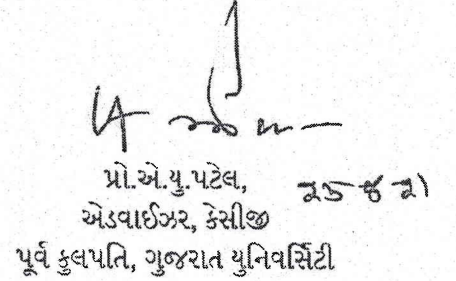 પ્રો.એ.યુ.પટેલ,
એડવાઈઝર, કેસીજી
પૂર્વ કુલપતિ, ગુજરાત યુનિવર્સિટી